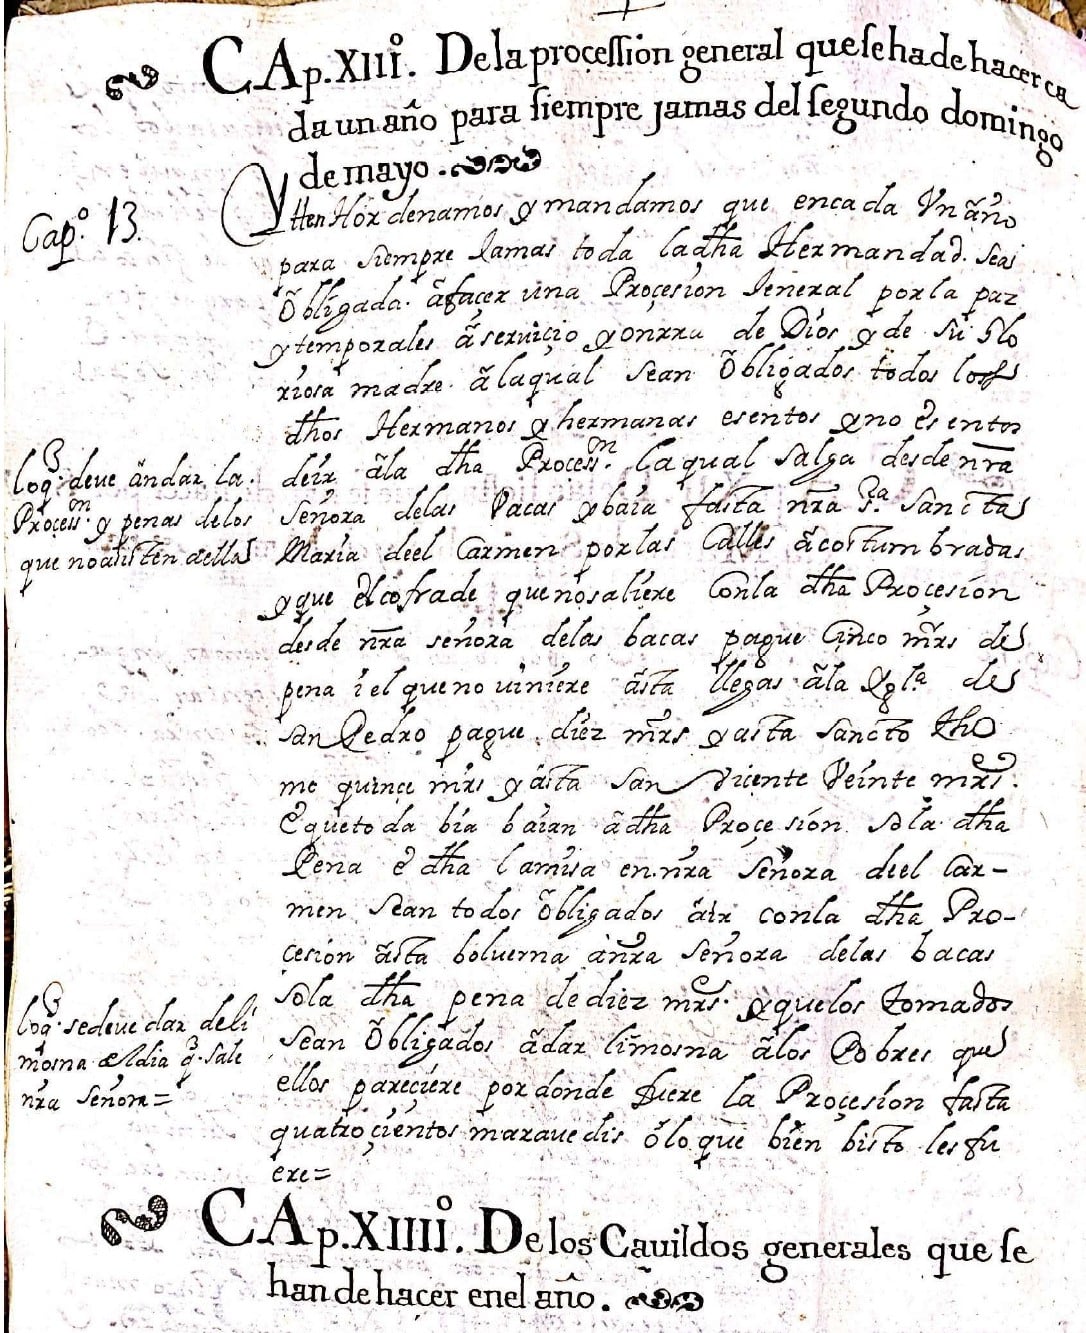 CAp. XIII°. De la processiòn general que se ha de hacer ca
da un año para siempre jamas del segundo domingo
de mayo.
Cap.° 13.
Ytten Hordenamos y mandamos que en cada Un año
para siempre Jamas toda la dha Hermandad. sea
Obligada. afaçer vna Proçesion Jeneral por la paz
y temporales a serviçio y onrra de Dios y de su Glo
riosa madre. a la qual sean Obligados todos los
dhos Hermanos y hermanas esentos y no esentos
de ir a la dha Processn. la qual salga desde nra
Señora de las Vacas y baia fasta nra Sra. sancta
Maria deel Carmen por las Calles acostumbradas
y que el cofrade que no saliere Con la dha Proçesion
desde nra señora de las bacas pague Cinco mrs de
pena i el que no viniere asta llegar a la Ygla. de
san Pedro pague diez mrs y asta sancto tho
me quinçe mrs y asta san Vicente Veinte mrs.
E que toda bia baian a dha Proçesion so la dha
Pena e dha la misa en nra Señora deel Car-
men sean todos obligados a ir con la dha Pro-
cesion asta boluerna a nra señora de las bacas
so la dha pena de diez mrs. y que los tomados
sean Obligados a dar limosna a los Pobres que
ellos pareçiere por donde fuere la Proçesion fasta
quatroçientos marauedis o lo que bien bisto les fu
ere=
lo q. deve andar la
Processn. y penas de los
que no asisten a ella
lo q. se deue dar de li
mosna el dia q. sale
nra Señora=
CAp. XIIII°. De los Cauildos generales que se
han de hacer en el año.